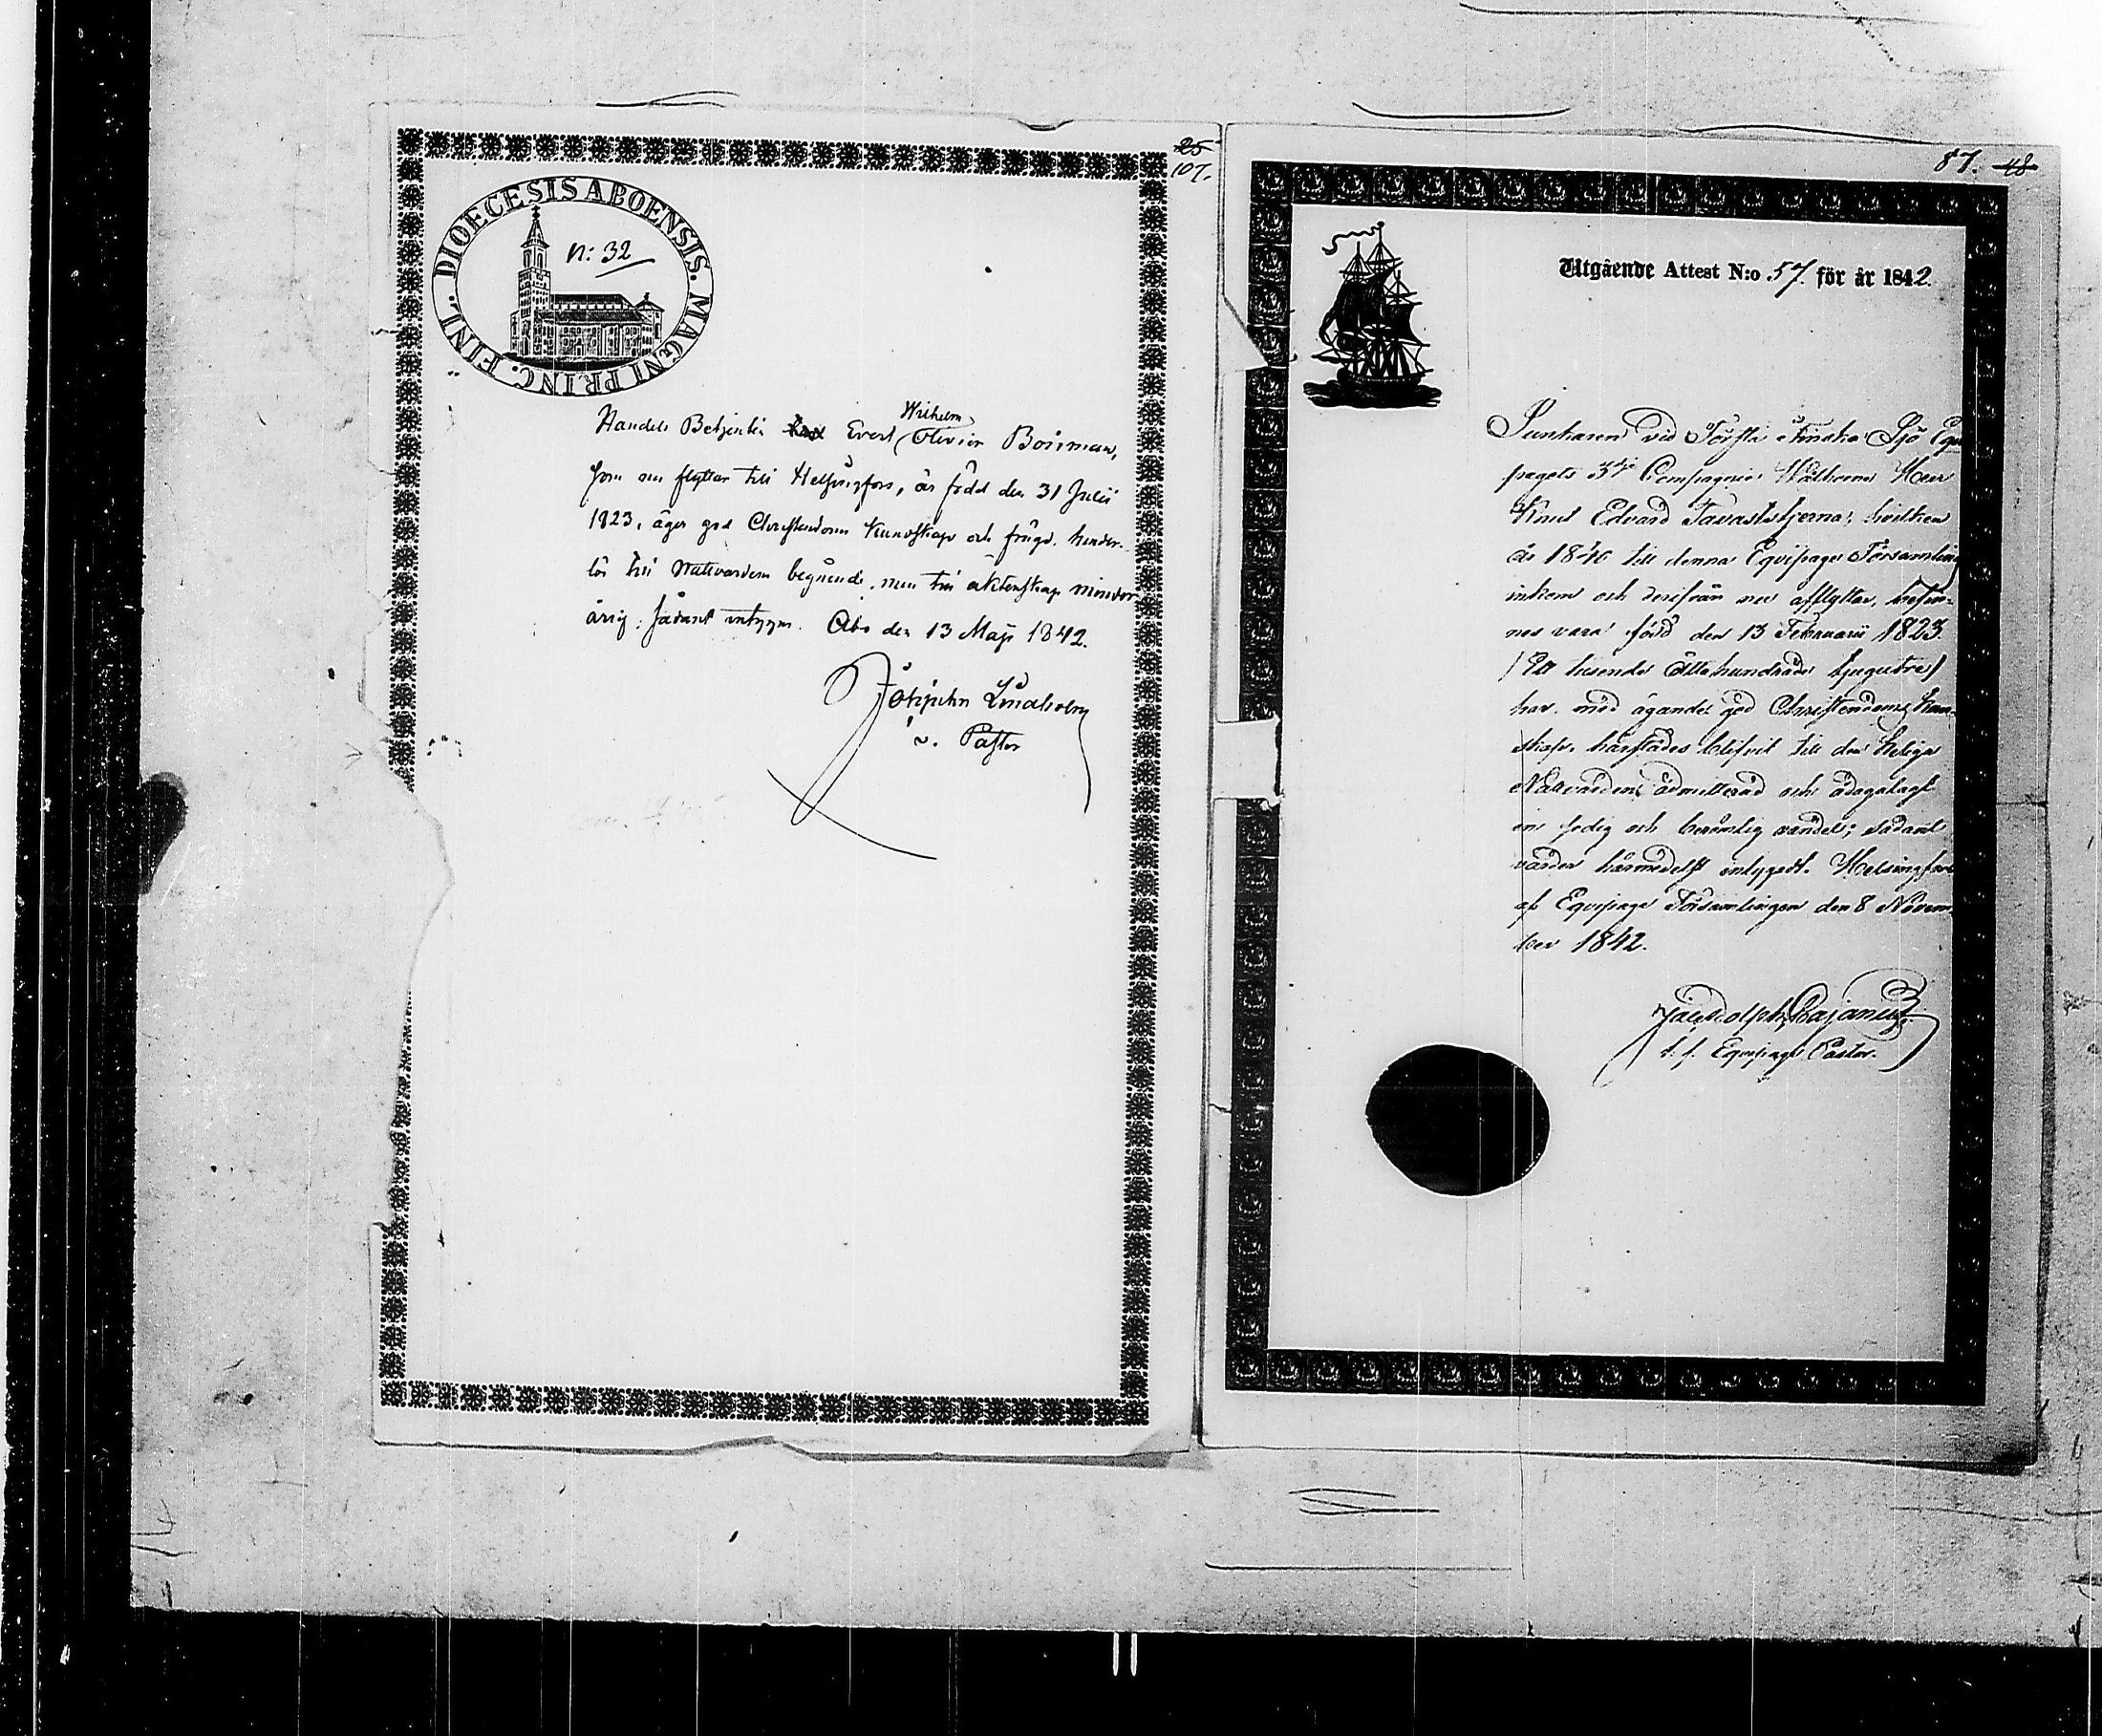 25
107.
DIOECESIS ABOENSIS. MAGNI PRINC. FINL.
N: 32
Wilhelm
Handels Betjenten Evert Olivier Boisman,
som nu flyttar till Helsingfors, är född den 31 Julii
1823, äger god Christendoms Kunskap och frägd, hinder-
lös till Nattvardens begående, men till äktenskap minder
årig; sådant intygas. Åbo den 13 Maji 1842.
Lindholm
v. Pastor
87. 48
Utgående Attest N:o 57. för år 1842.
Junkaren vid Första Finska Sjö Equi
pagets 3dje Compagnie Wälborne Herr
Knut Edvard Tavaststjerna, hvilken
år 1840 till denna Equipage Församling
inkom och derifrån nu afflyttar, befin-
nes vara född den 13 Februarii 1823.
(Ett tusende Åttahundrade tjugutre)
har, med ägande god Christendoms Kun-
skap, härstädes blifvit till den Heliga
Nattvarden admitterad och ådagalagt
en sedig och berömlig vandel; sådant
varder härmedelst intygadt. Helsingfors
af Equipage Församlingen den 8 Novem-
ber 1842.
Jac. Adolph Cajanus
t. f. Equipage Pastor.